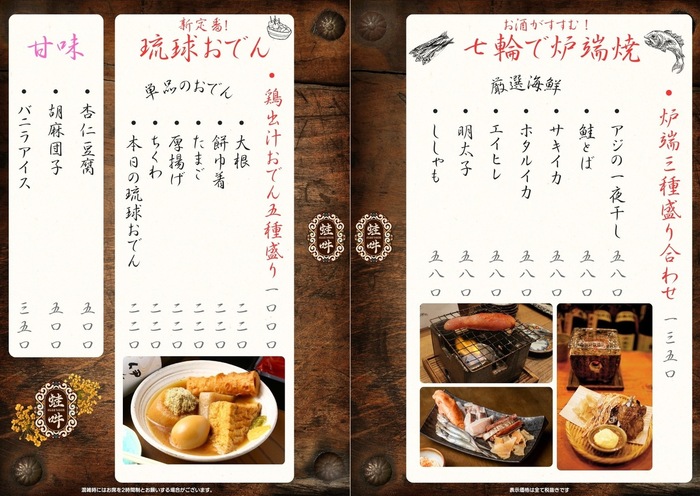 お酒がすすむ!
七輪で炉端焼
●炉端三種盛り合わせ 一三五〇
厳選海鮮
●アジの一夜干し 五八〇
●鮭とば 五八〇
●サキイカ 五八〇
●ホタルイカ 五八〇
●エイヒレ 五八〇
●明太子 五八〇
●ししゃも 五八〇
表示価格は全て税抜きです
蛙吽
蛙吽
新定番!
琉球おでん
●鶏出汁おでん五種盛り 一〇〇〇
単品のおでん
●大根 二二〇
●餅巾着 二二〇
●たまご 二二〇
●厚揚げ 二二〇
●ちくわ 二二〇
●本日の琉球おでん 二二〇
甘味
●杏仁豆腐 五〇〇
●胡麻団子 五〇〇
●バニラアイス 三五〇
蛙吽
混雑時にはお席を2時間制とお願いする場合がございます。